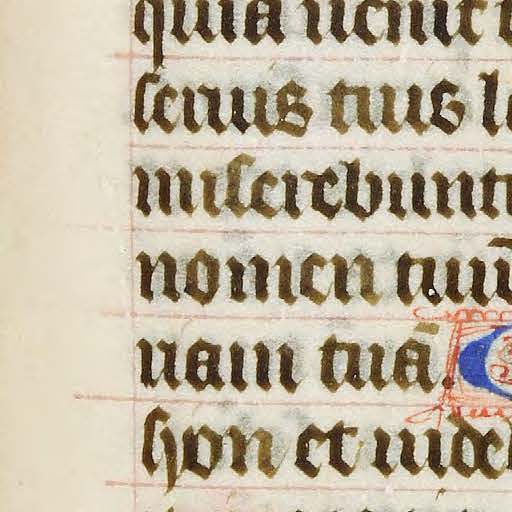 quia uenit
seruis tuis
miserebunt
nomen tuū
riam tuā.
syon et uide